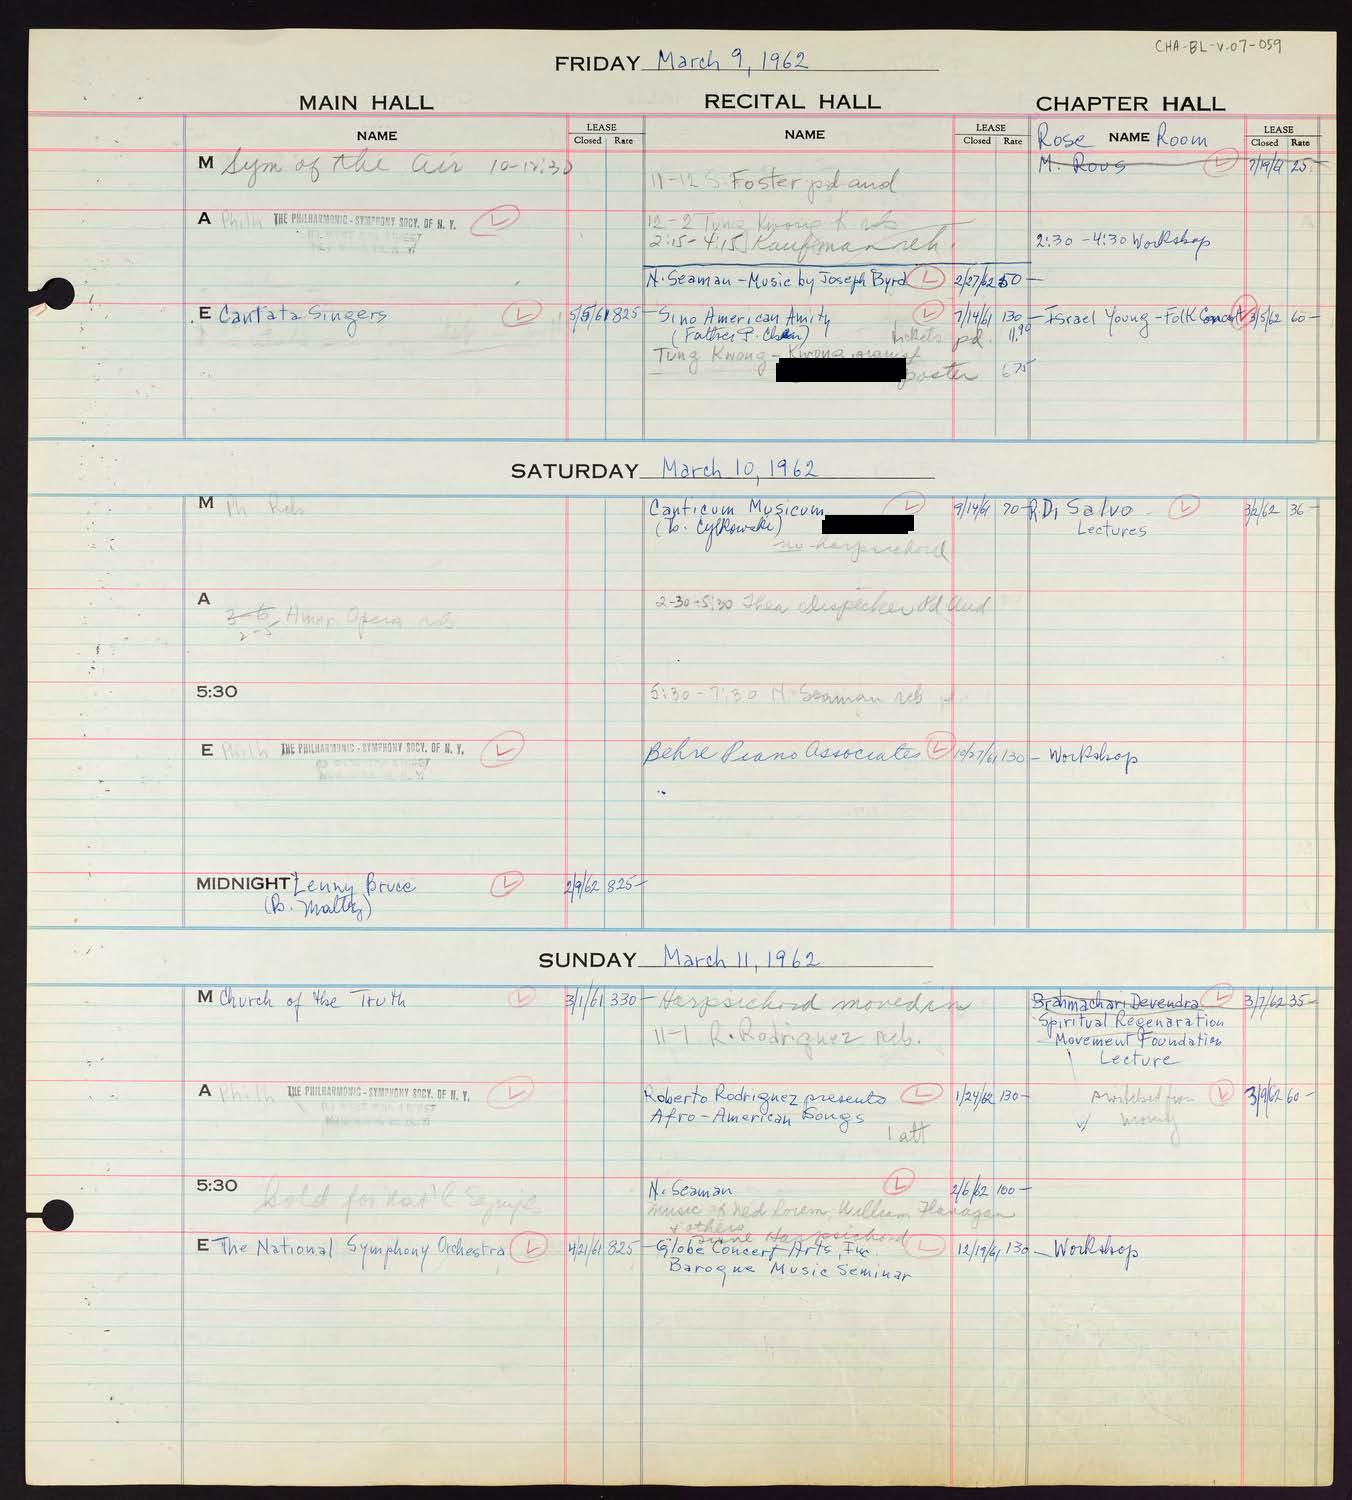 CHA-BL-V-07-059
FRIDAY March 9, 1962
MAIN HALL RECITAL HALL CHAPTER HALL
NAME LEASE Closed Rate NAME LEASE Closed Rate Rose NAME Room LEASE Closed Rate
M Sym of the Air 10-12:30
M. Rous L 7/19/61 25-
11-12 S. Foster pd aud
A Philh THE PHILHARMONIC-SYMPHONY SOCY. OF N. Y. L
12-2 Tung Kwong K reh
2:15-4:15 Kaufman reh.
2:30-4:30 Workshop
N. Seaman - Music by Joseph Byrd L 2/27/62 50-
E Cantata Singers L 5/5/61 825-
Sino American Amity L 7/14/61 130-
(Father P. Chan) tickets pd. 11.90
Israel Young - Folk Concert L 3/5/62 60-
Tung Kwong - Kwong
poster 6 75
SATURDAY March 10, 1962
M Ph Reh
Canticum Musicum L 9/14/61 70-
(B. Cylkowski)
no harpsichord
R. Di Salvo L 3/2/62 36-
Lectures
A 3-6 Amer. Opera reh
2-5
2-30-5:30 Thea Dispecker Pd Aud
5:30
5:30-7:30 N. Seaman reh
E Philh THE PHILHARMONIC-SYMPHONY SOCY. OF N. Y. L
Behre Piano Associates L 10/27/61 130-
Workshop
MIDNIGHT Lenny Bruce L 2/9/62 825-
(D. Maltz)
SUNDAY March 11, 1962
M Church of the Truth L 3/1/61 330-
Harpsichord moved in
11-1 R. Rodriguez reh.
Brahmachari Devendra L 3/7/62 35-
Spiritual Regenaration
Movement Foundation
Lecture
A Philh THE PHILHARMONIC-SYMPHONY SOCY. OF N. Y. L
Roberto Rodriguez presents L 1/24/62 130-
Afro-American Songs
1 att
switched from L 3/9/62 60-
morning
5:30 hold for Nat'l Symph
N. Seaman L 2/6/62 100-
music of Ned Rorem, William Flanagan
+ others
tune Harpsichord
E The National Symphony Orchestra L 4/21/61 825-
Globe Concert Arts, Inc. L 12/19/61 130-
Baroque Music Seminar
Workshop